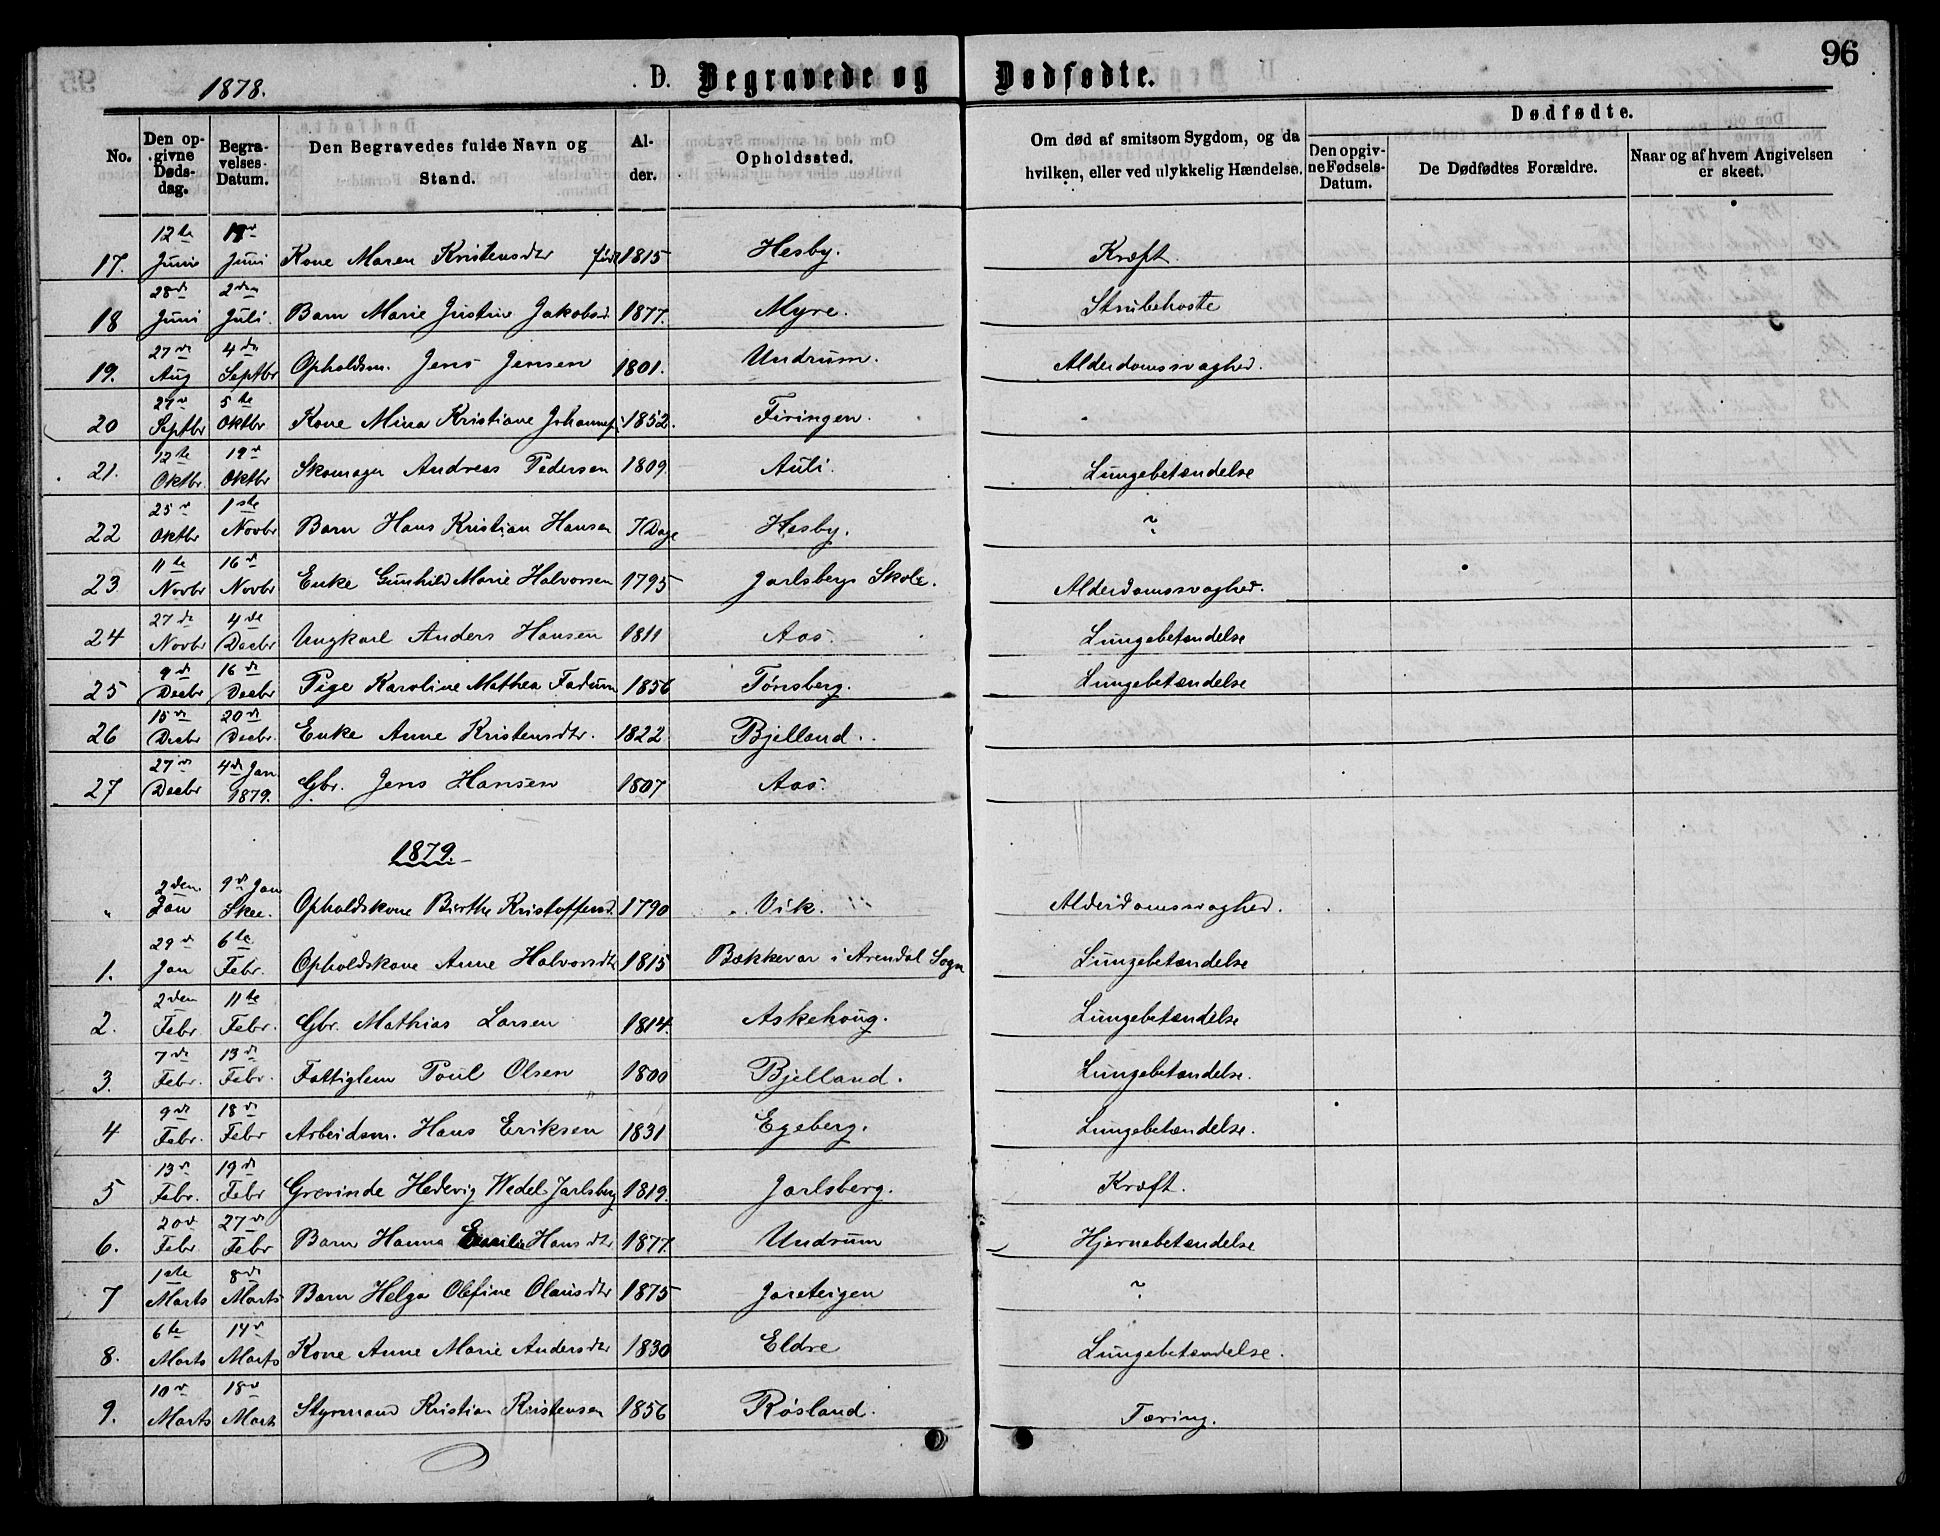 96
1878.
D. Begravede og Dødfødte.
No.
Den opgivne Dødsdag.
Begravelses-Datum.
Den Begravedes fulde Navn og Stand.
Alder.
Opholdssted.
Om død af smitsom Sygdom, og da hvilken, eller ved ulykkelig Hændelse.
Dødfødte.
Den opgivne Fødsels-Datum.
De Dødfødtes Forældre.
Naar og af hvem Angivelsen er skeet.
17. 12te Juni Juni Kone Maren Kristensdtr født 1815 Hesby. Kræft.
18 28de Juni 2den Juli. Barn Marie Justine Jakobsd. 1877. Myre. Strubehoste
19. 27de Aug 4de Septbr Opholdsm. Jens Jensen 1801. Undrum. Alderdomssvaghed.
20 Septbr 5te Oktbr Kone Mina Kristiane 1852. Firingen.
21. 12te Oktbr. 19de Oktbr Skomager Andreas Pedersen 1809. Auli. Lungebetændelse
22 25de Oktbr 1ste Novbr Barn Hans Kristian Hansen 7 Dage Hesby. ?
23 11te Novbr 16de Novbr Enke Gunhild Marie Halvorsen 1795 Jarlsberg Skole. Alderdomssvaghed.
24 27de Novbr 4de Decbr Ungkarl Anders Hansen 1811 Aas. Lungebetændelse
25 9de Decbr 16de Decbr Pige Karoline Mathea Fadum 1856 Tønsberg. Lungebetændelse
26 15de Decbr 20de Decbr. Enke Anne Kristensdtr. 1822 Bjelland.
27 27de Decbr 4de Jan 1879. Gbr. Jens Hansen 1807 Aas.
1879.
" 2den Jan 9de Jan Skee. Opholdskone Birthe Kristoffersd. 1790 Vik. Alderdomssvaghed.
1. 29de Jan 6te Febr. Opholdskone Anne Halvorsdtr 1815 Bækkevar i Arendal Sogn Lungebetændelse
2. 2den Febr. 11te Febr. Gbr. Mathias Larsen 1814. Askehoug. Lungebetændelse
3. 7de Febr. 13de Febr. Fattiglem Poul Olsen 1800 Bjelland. Lungebetændelse.
4 9de Febr. 18de Febr Arbeidsm. Hans Eriksen 1831 Egeberg. Lungebetændelse.
5 13de Febr. 19de Febr Grevinde Hedevig Wedel-Jarlsberg 1819. Jarlsberg. Kræft.
6. 20de Febr. 27de Febr Barn Hanna Emilie Hansdtr 1877. Undrum Hjernebetændelse
7 1ste Marts 8de Marts Barn Helga Olefine Olausdtr 1875 Jareteigen ?
8. 6te Marts 14de Marts Kone Anne Marie Andersdtr 1830 Eldre Lungebetændelse.
9. 10de Marts 18de Marts Styrmand Kristian Kristensen 1856 Røsland. Tæring.